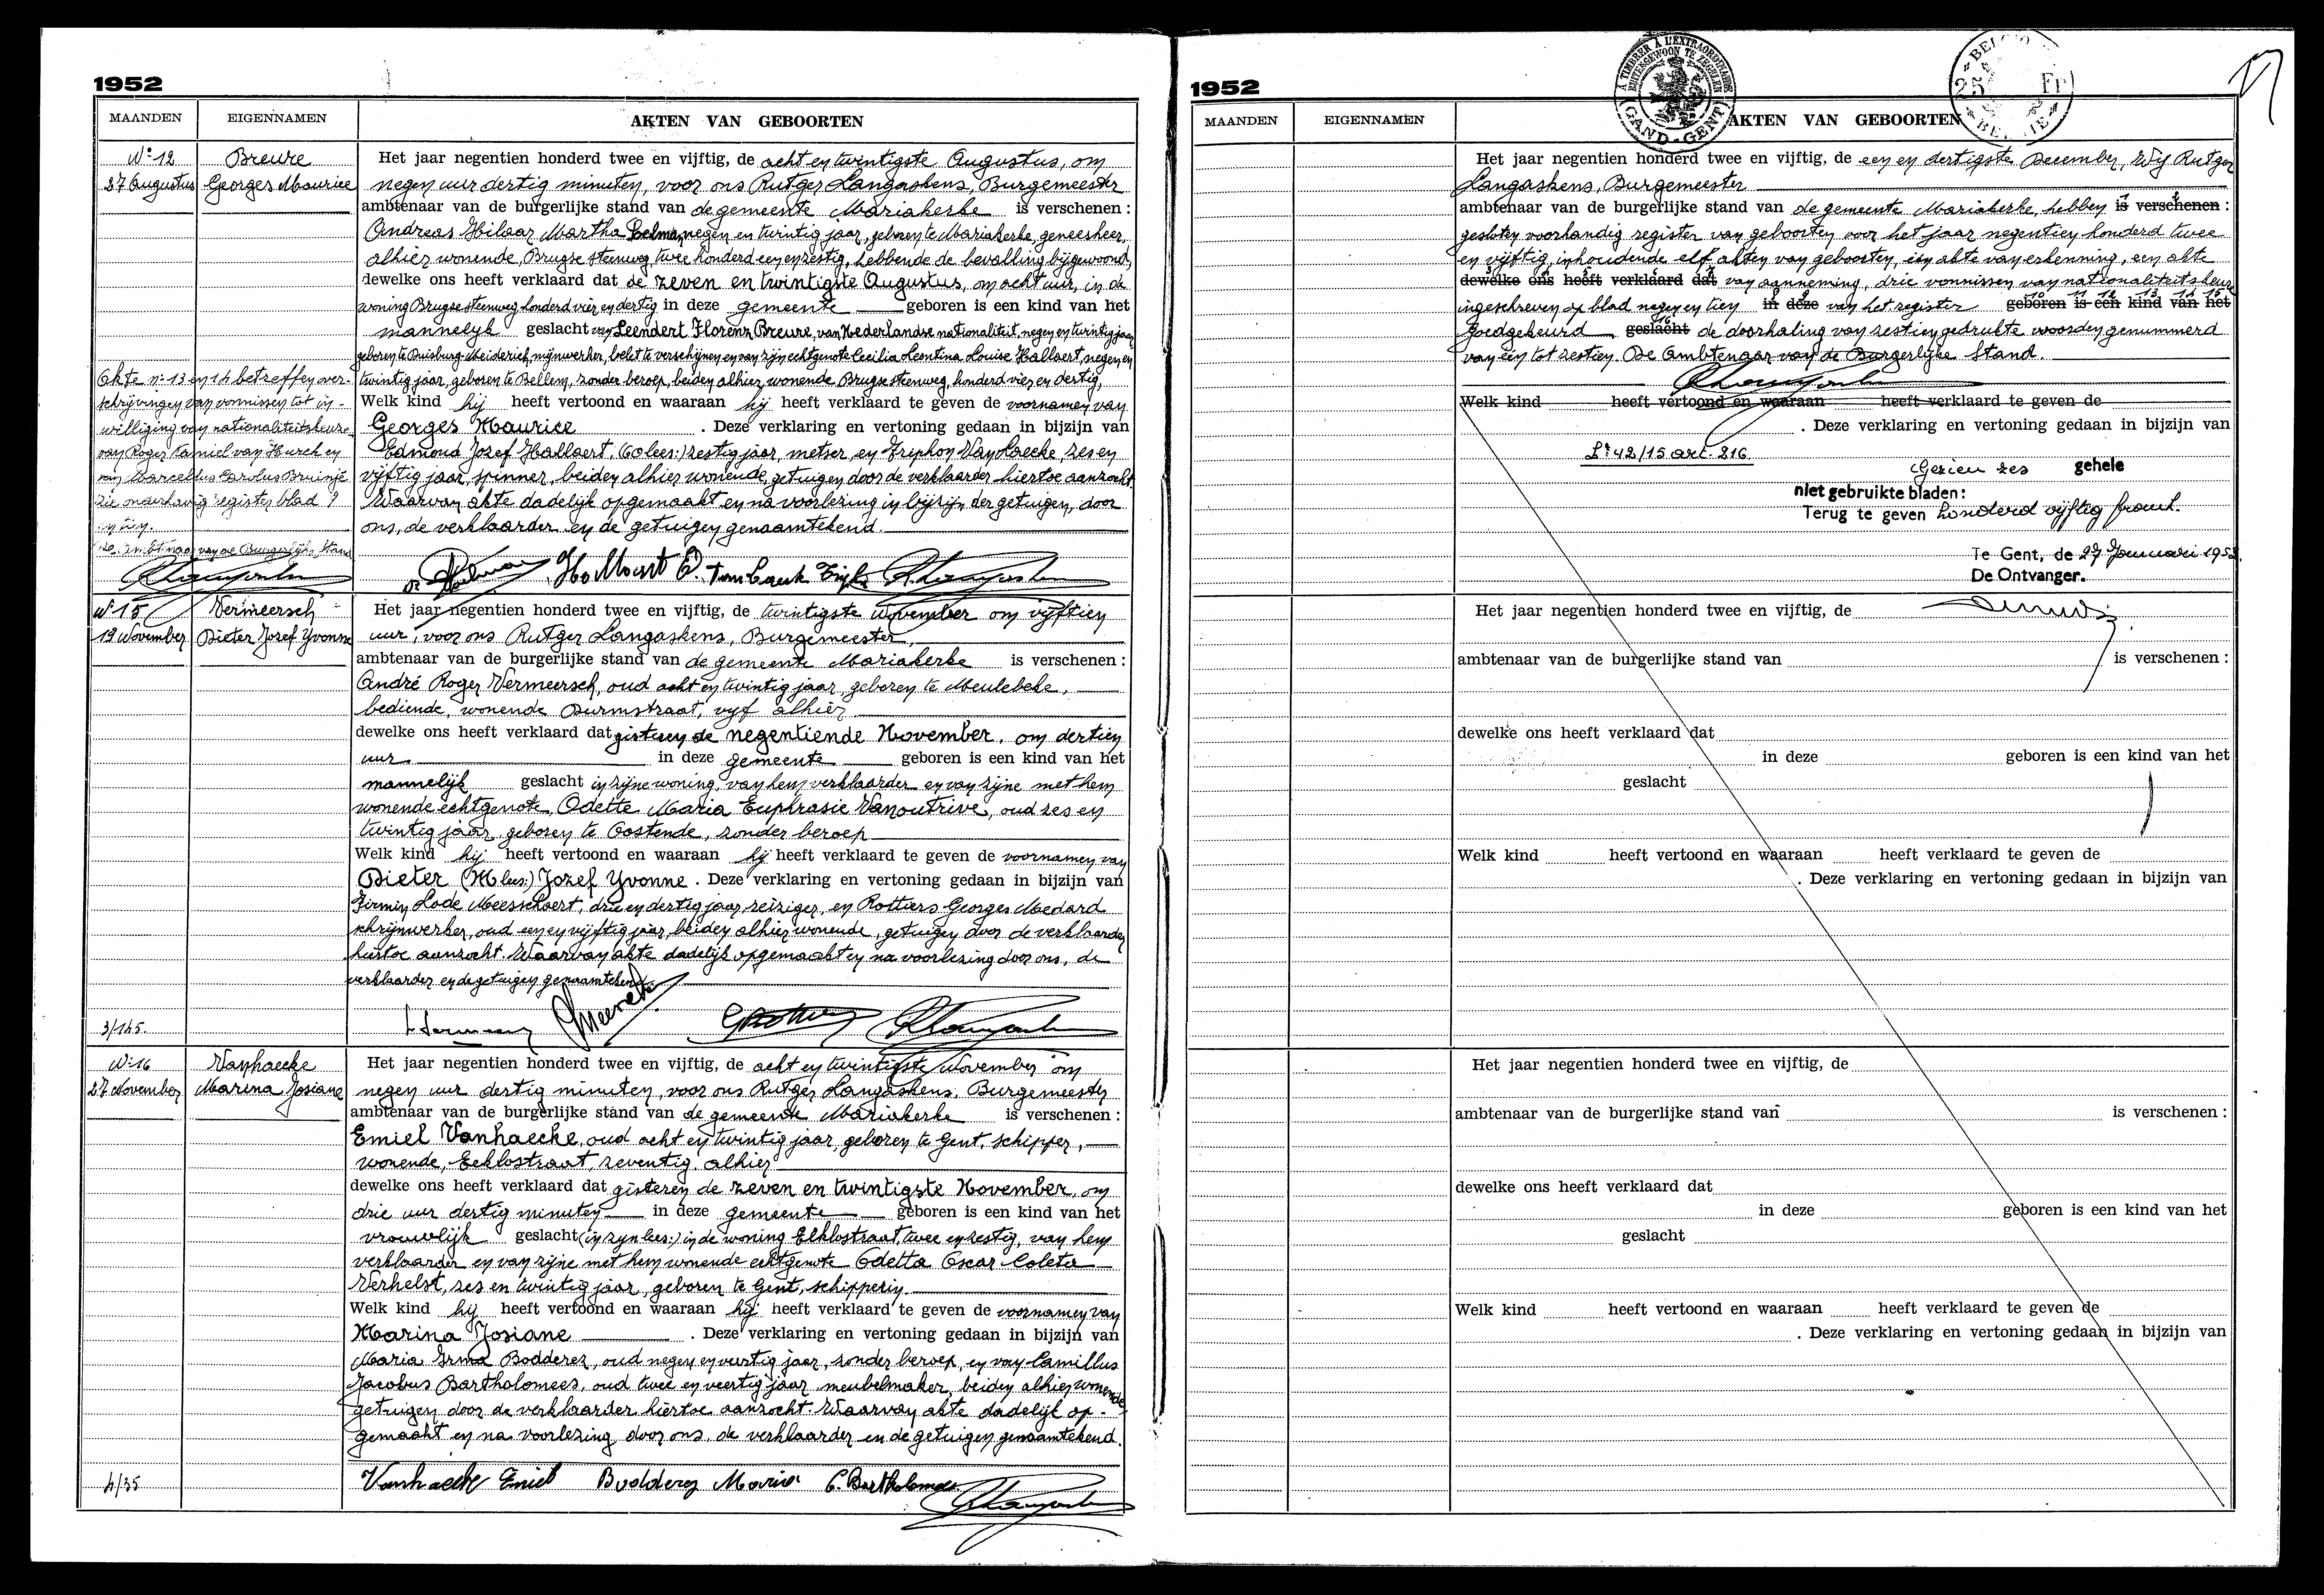 1952
MAANDEN EIGENNAMEN AKTEN VAN GEBOORTEN
N° 12 Breure
27 Augustus Georges Maurice
Het jaar negentien honderd twee en vijftig, de acht en twintigste Augustus, om
negen uur dertig minuten, voor ons Rutger Langaskens, Burgemeester
ambtenaar van de burgerlijke stand van de gemeente Mariakerke is verschenen :
Andreas Hilaar Martha negen en twintig jaar, geboren te Mariakerke, geneesheer,
alhier wonende, Brugse steenweg twee honderd een en zestig, hebbende de bevalling bijgewoond,
dewelke ons heeft verklaard dat de zeven en twintigste Augustus, om acht uur, in de
woning Brugse steenweg honderd vier en dertig in deze gemeente geboren is een kind van het
mannelijk geslacht van Leendert Florenz Breure, van Nederlandse nationaliteit, negen en twintig jaar
geboren te Duisburg-Meiderich, mijnwerker, belet te verschijnen en van zijn echtgenote Cecilia Leontina Louise Hallaert, negen en
twintig jaar, geboren te Bellem, zonder beroep, beiden alhier wonende Brugse steenweg, honderd vier en dertig,
Welk kind hij heeft vertoond en waaraan hij heeft verklaard te geven de voornamen van
Georges Maurice . Deze verklaring en vertoning gedaan in bijzijn van
Edmond Jozef Hallaert, (O lees:) zestig jaar, metser, en Triphon Vanhaecke, zes en
vijftig jaar, spinner, beiden alhier wonende, getuigen door de verklaarder hiertoe aanzocht
Waarvan akte dadelijk opgemaakt en na voorlezing in bijzijn der getuigen, door
ons, de verklaarder en de getuigen genaamtekend.
Akte n° 13 en 14 betreffen over-
schrijvingen van vonnissen tot in-
williging van nationaliteitskeuze
van Roger Kamiel van Hurck en
van Marcellus Carolus Bruinjé
zie naarhavig register blad 9
en tien.
De Ambtenaar van de Burgerlijke Stand
Hallaert O.
N° 15 Vermeersch
19 November Dieter Jozef Yvonne
Het jaar negentien honderd twee en vijftig, de twintigste November om vijftien
uur, voor ons Rutger Langaskens, Burgemeester,
ambtenaar van de burgerlijke stand van de gemeente Mariakerke is verschenen :
André Roger Vermeersch, oud acht en twintig jaar, geboren te Meulebeke,
bediende, wonende Durmstraat, vijf alhier
dewelke ons heeft verklaard dat gisteren de negentiende November, om dertien
uur in deze gemeente geboren is een kind van het
mannelijk geslacht in zijne woning, van hem verklaarder en van zijne met hem
wonende echtgenote, Odette Maria Euphrasie Vanoutrive, oud zes en
twintig jaar, geboren te Oostende, zonder beroep
Welk kind hij heeft vertoond en waaraan hij heeft verklaard te geven de voornamen van
Dieter (M lees:) Jozef Yvonne . Deze verklaring en vertoning gedaan in bijzijn van
Firmin Lode Meesschaert, drie en dertig jaar, reiziger, en Rottiers Georges Medard
schrijnwerker, oud een en vijftig jaar, beiden alhier wonende, getuigen door de verklaarder
hiertoe aanzocht. Waarvan akte dadelijk opgemaakt en na voorlezing door ons, de
verklaarder en de getuigen genaamtekend.
3/145.
N° 16 Vanhaecke
27 November Marina Josiane
Het jaar negentien honderd twee en vijftig, de acht en twintigste November om
negen uur dertig minuten, voor ons Rutger Langaskens, Burgemeester
ambtenaar van de burgerlijke stand van de gemeente Mariakerke is verschenen :
Emiel Vanhaecke, oud acht en twintig jaar, geboren te Gent, schipper,
wonende, Eeklostraat, zeventig, alhier
dewelke ons heeft verklaard dat gisteren de zeven en twintigste November, om
drie uur dertig minuten in deze gemeente geboren is een kind van het
vrouwelijk geslacht (in zijn lees:) in de woning Eeklostraat, twee en zestig, van hem
verklaarder en van zijne met hem wonende echtgenote Odetta Oscar Coleta
Verhelst, zes en twintig jaar, geboren te Gent, schipperin.
Welk kind hij heeft vertoond en waaraan hij heeft verklaard te geven de voornamen van
Marina Josiane . Deze verklaring en vertoning gedaan in bijzijn van
Maria Irma Bodderez, oud negen en veertig jaar, zonder beroep, en van Camillus
Jacobus Bartholomees, oud twee en veertig jaar, meubelmaker, beiden alhier wonende
getuigen door de verklaarder hiertoe aanzocht. Waarvan akte dadelijk op-
gemaakt en na voorlezing door ons, de verklaarder en de getuigen genaamtekend.
4/35
Vanhaecke Emiel Bodderez Maria C. Bartholomees
1952
A TIMBRER A L'EXTRAORDINAIRE
BUITENGEWOON TE ZEGELEN
GAND-GENT
25 Fr
MAANDEN EIGENNAMEN AKTEN VAN GEBOORTEN
Het jaar negentien honderd twee en vijftig, de een en dertigste December, Wij Rutger
Langaskens, Burgemeester
ambtenaar van de burgerlijke stand van de gemeente Mariakerke, hebben is verschenen :
gesloten voorhandig register van geboorten voor het jaar negentien honderd twee
en vijftig, inhoudende elf akten van geboorten, één akte van erkenning, een akte
dewelke ons heeft verklaard dat van aanneming, drie vonnissen van nationaliteitskeuze
ingeschreven op blad negen en tien in deze van het register geboren is een kind van het
Goedgekeurd geslacht de doorhaling van zestien gedrukte woorden genummerd
van één tot zestien. De Ambtenaar van de Burgerlijke Stand.
Welk kind heeft vertoond en waaraan heeft verklaard te geven de
. Deze verklaring en vertoning gedaan in bijzijn van
Lr 42/15 art. 216
Gezien zes gehele
niet gebruikte bladen:
Terug te geven honderd vijftig frank.
Te Gent, de 27 Januari 1953.
De Ontvanger.
Het jaar negentien honderd twee en vijftig, de
ambtenaar van de burgerlijke stand van is verschenen :
dewelke ons heeft verklaard dat
in deze geboren is een kind van het
geslacht
Welk kind heeft vertoond en waaraan heeft verklaard te geven de
. Deze verklaring en vertoning gedaan in bijzijn van
Het jaar negentien honderd twee en vijftig, de
ambtenaar van de burgerlijke stand van is verschenen :
dewelke ons heeft verklaard dat
in deze geboren is een kind van het
geslacht
Welk kind heeft vertoond en waaraan heeft verklaard te geven de
. Deze verklaring en vertoning gedaan in bijzijn van